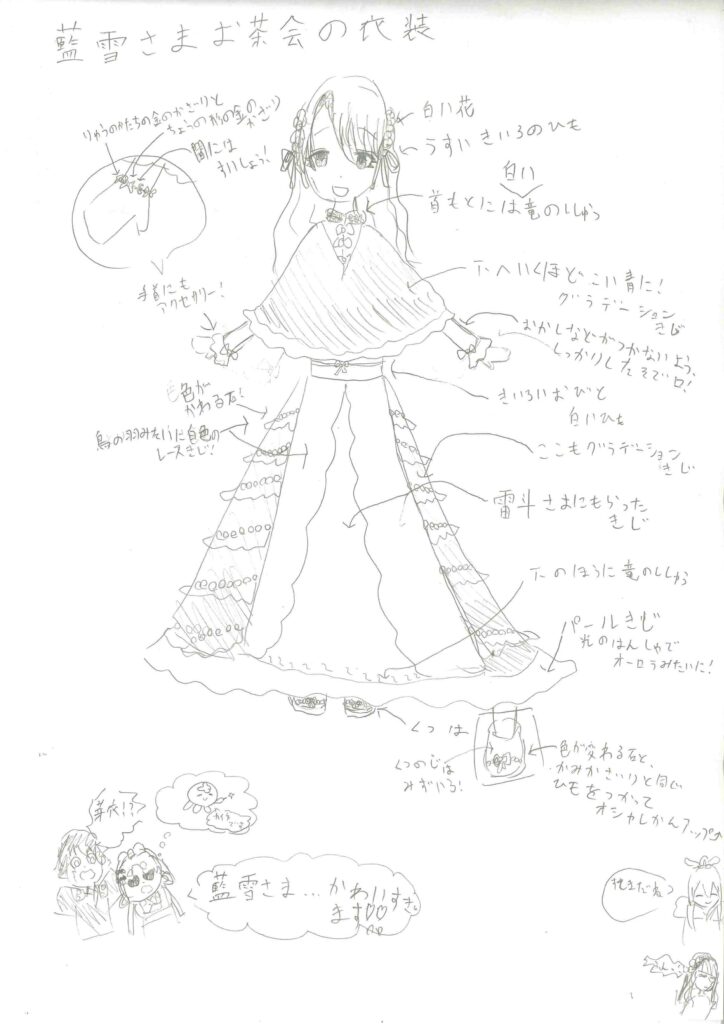 藍雪さまお茶会の衣装
りゅうのかたちの金のかざりと
ちょうのがらの金の
かざり
間には
すいしょう!
手首にも
アクセサリー!
白い花
うすいきいろのひも
白い
首もとには竜のししゅう
下へいくほどこい青に!
グラデーション
きじ
おかしなどがつかないよう、
しっかりしたそで口!
色が
かわる石!
鳥の羽みたいに白色の
レースきじ!
きいろいおびと
白いひも
ここもグラデーション
きじ
雷斗さまにもらった
きじ
下のほうに竜のししゅう
パールきじ
光のはんしゃで
オーロラみたいに!
くつは
くつのじは
みずいろ!
色が変わる石と、
かみかざりと同じ
ひもをつかって
オシャレかんアップ♪
芽衣!?
藍雪さま…かわいすぎ
ます♡♡